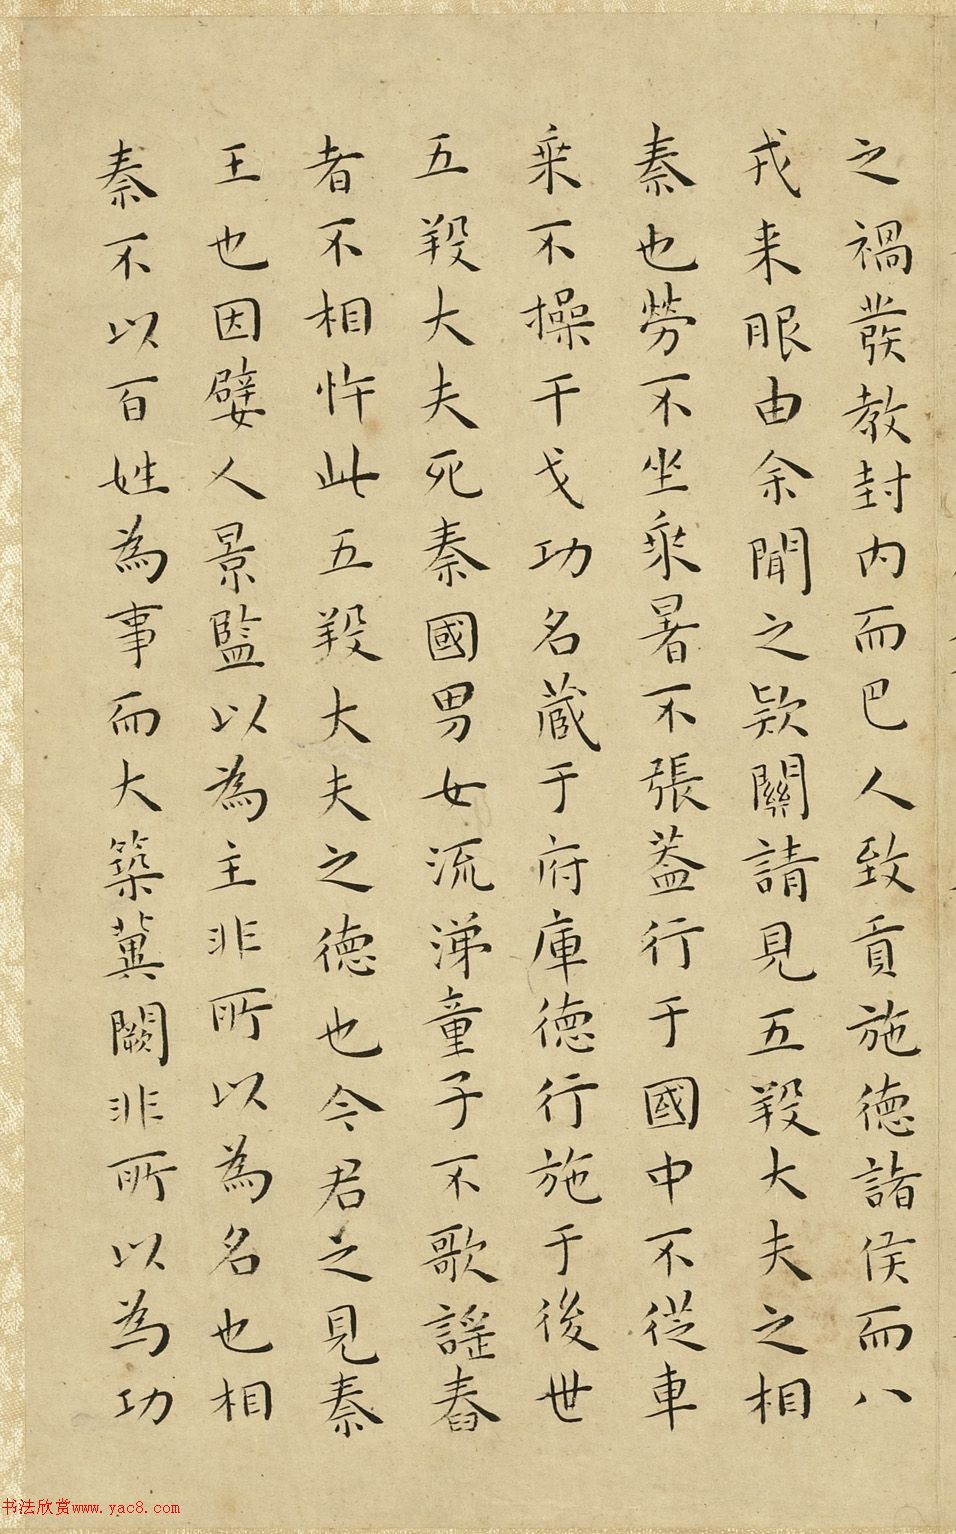 之禍發教封内而巴人致貢施德諸侯而八
戎来服由余聞之欵關請見五羖大夫之相
秦也勞不坐乘暑不張蓋行于國中不從車
乘不操干戈功名蔵于府庫德行施于後世
五羖大夫死秦國男女流涕童子不歌謡舂
者不相杵此五羖大夫之德也今君之見秦
王也因嬖人景監以為主非所以為名也相
秦不以百姓為事而大築冀闕非所以為功
书法欣赏www.yac8.com